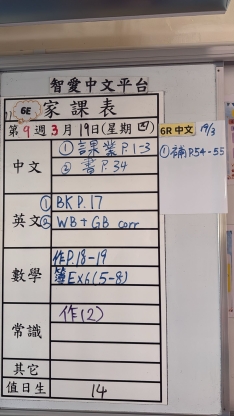 智愛中文平台
6E 家課表
第9週3月19日(星期四)
中文 ①課業P.1-3
②書P.34
英文 ①BK P.17
② WB + GB corr
數學 作P.18-19
簿Ex6(5-8)
常識 作(2)
其它
值日生 14
6R 中文 19/3
①補P.54-55